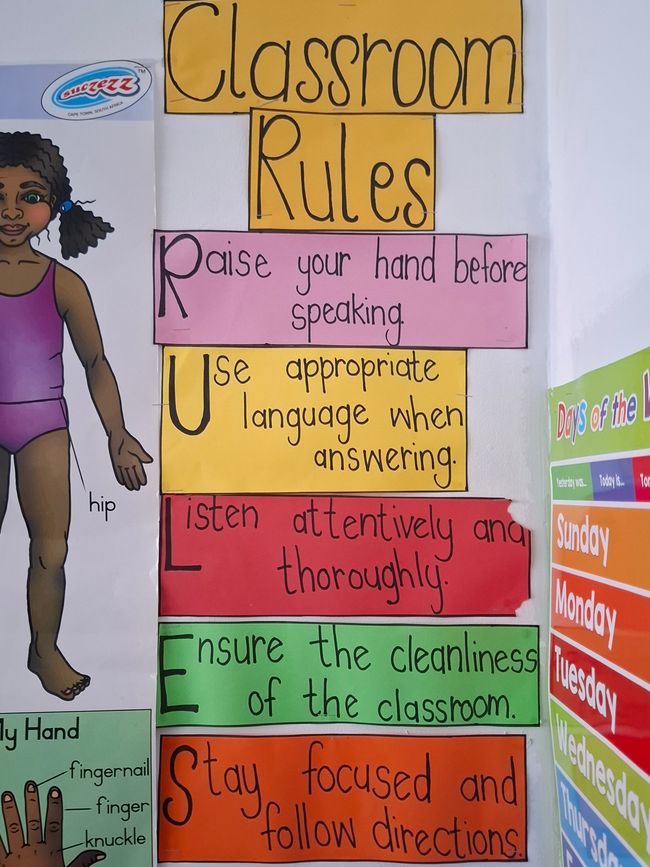 suczezz
TM
CAPE TOWN, SOUTH AFRICA
hip
My Hand
fingernail
finger
knuckle
Classroom
Rules
Raise your hand before
speaking.
Use appropriate
language when
answering.
Listen attentively and
thoroughly.
Ensure the cleanliness
of the classroom.
Stay focused and
follow directions.
Days of the
Yesterday was...
Today is...
Sunday
Monday
Tuesday
Wednesday
Thursday